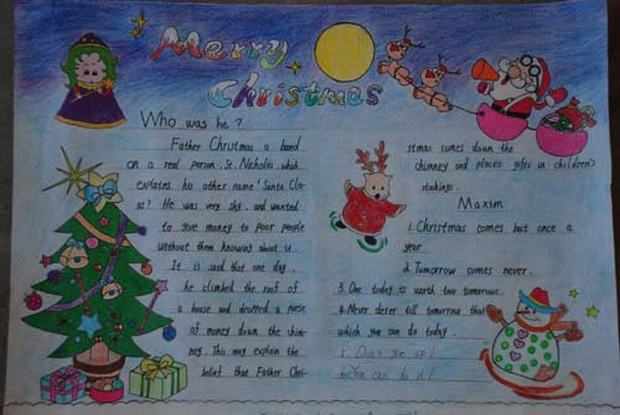 Merry
Christmas
Who was he?
Father Christmas a band
on a real person, St. Nicholas which
explains his other name 'Santa Cla-
as? He was very shy, and wanted
to give money to poor people
without them knowing about it
It is said that one day,
he climbed the roof of
a house and dropped a purse
of money down the chim-
ney. This may explain the
belief that Father Chri-
stmas comes down the
chimney and places gifts in children's
stockings.
Maxim
1. Christmas comes but once a
year
2. Tomorrow comes never.
3. One today is worth two tomorrow.
4. Never defer till tomorrow that
which you can do today.
You can do it!